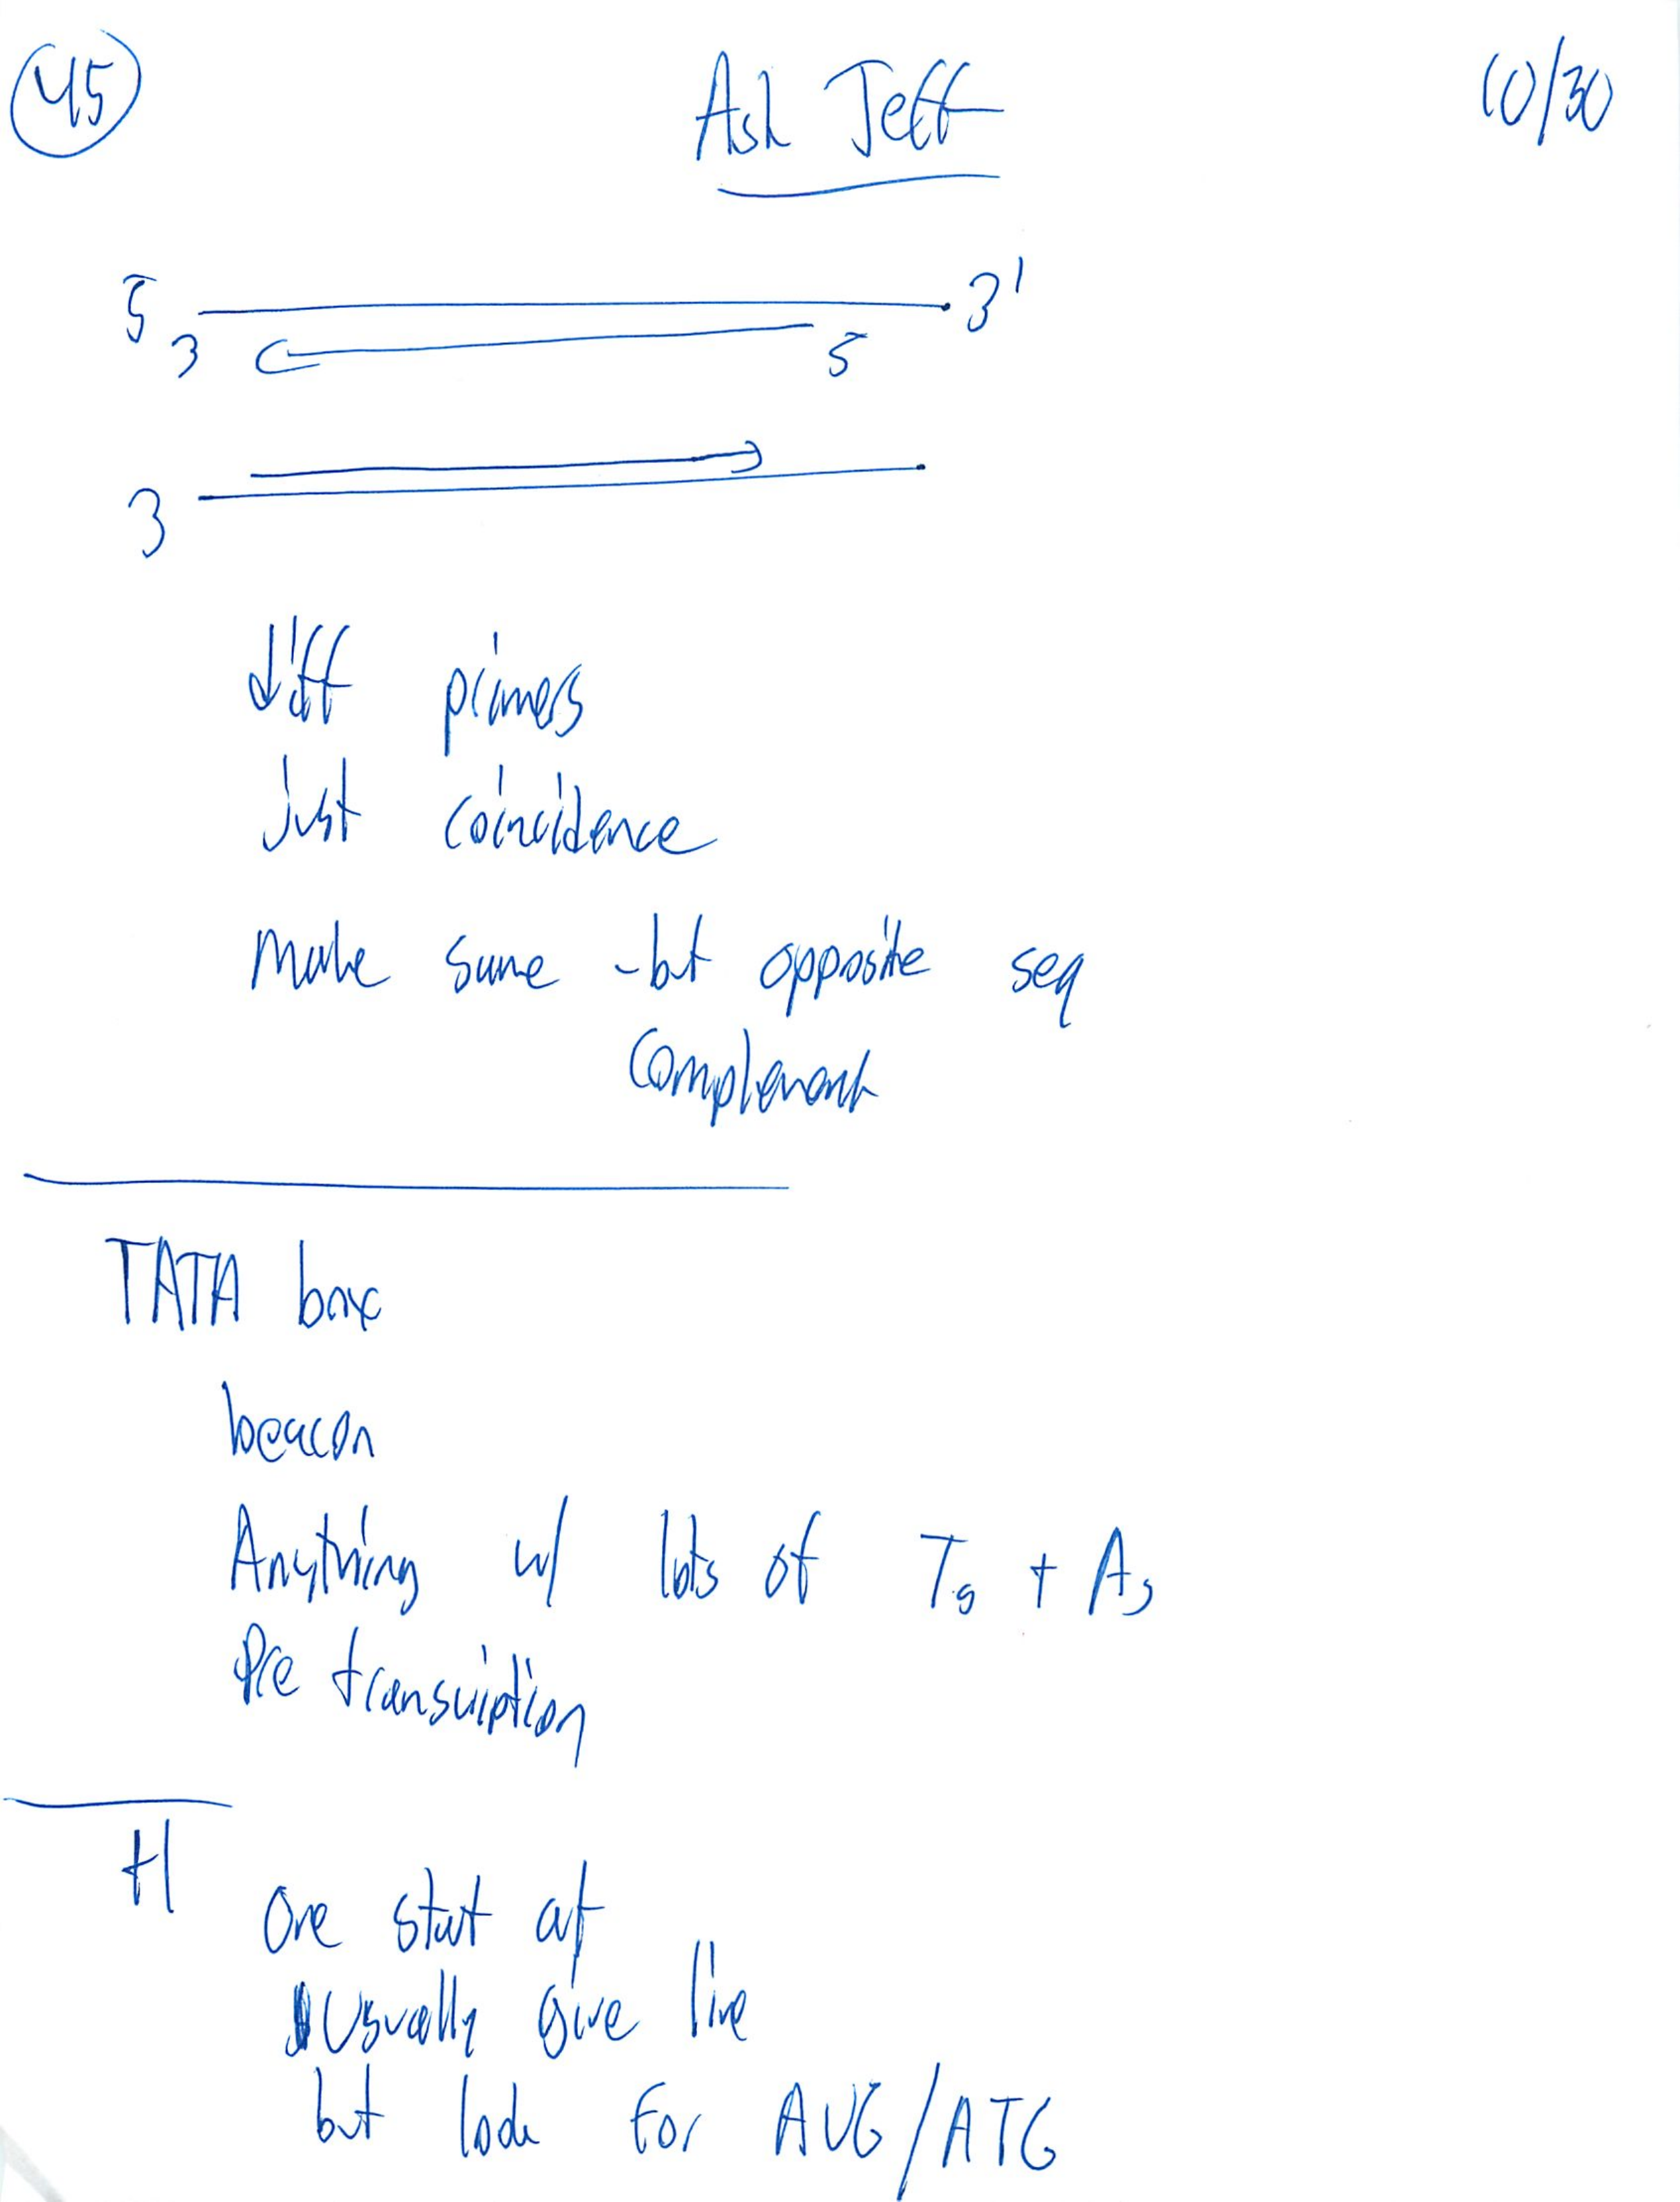 45
Ask Jeff
10/30
5 3'
3 5
3
diff primers
just coincidence
Make same - but opposite seq
Complement
TATA box
beacon
Anything w/ lots of Ts + As
Pre transcription
+1
One start at
Usually give line
but look for AUG/ATG